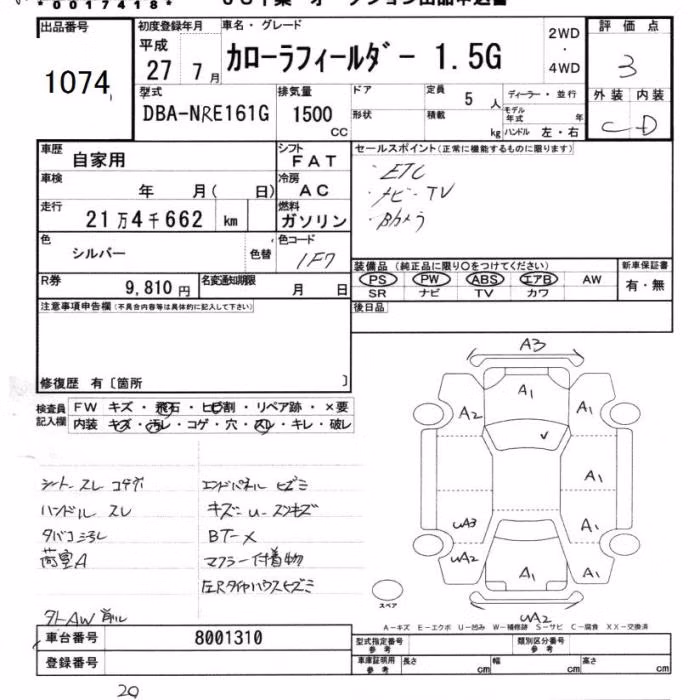 *0017418*
出品番号
1074
初度登録年月
平成
27 7月
車名・グレード
カローラフィールダー 1.5G
2WD
・
4WD
評価点
3
外装 内装
C D
型式
DBA-NRE161G
排気量
1500
CC
ドア
形状
定員
5 人
積載
kg
ディーラー・並行
モデル年式
年
ハンドル 左・右
車歴
自家用
シフト
FAT
車検
年 月( 日)
冷房
AC
走行
21万4千662 km
燃料
ガソリン
色
シルバー
色替
色コード
1F7
R券
9,810円
名変通知期限
月 日
セールスポイント(正常に機能するものに限ります)
・ETC
・ナビ・TV
・Bカメラ
装備品(純正品に限り〇をつけてください)
PS PW ABS エアB AW
SR ナビ TV カワ
新車保証書
有・無
後日品
注意事項申告欄(不具合内容等は具体的に記入して下さい)
修復歴 有〔箇所 〕
検査員記入欄
FW キズ・飛石・ヒビ割・リペア跡・×要
内装 キズ・汚レ・コゲ・穴・スレ・キレ・破レ
シート スレ コゲ穴
ハンドル スレ
タバコシミ
荷室A
タトAW 削ル
エンドパネル ヒズミ
キズ U スリキズ
BT-×
マフラー付着物
左Rタイヤハウスヒズミ
A3
A1
A2
A1
A1
UA3
A1
UA2
A1
A1
UA2
スペア
A-キズ E-エクボ U-凹み W-補修跡 S-サビ C-腐食 XX-交換済
車台番号
8001310
登録番号
型式指定番号
参考
類別区分番号
参考
車庫証明用
参考
長さ cm
幅 cm
高さ cm
29